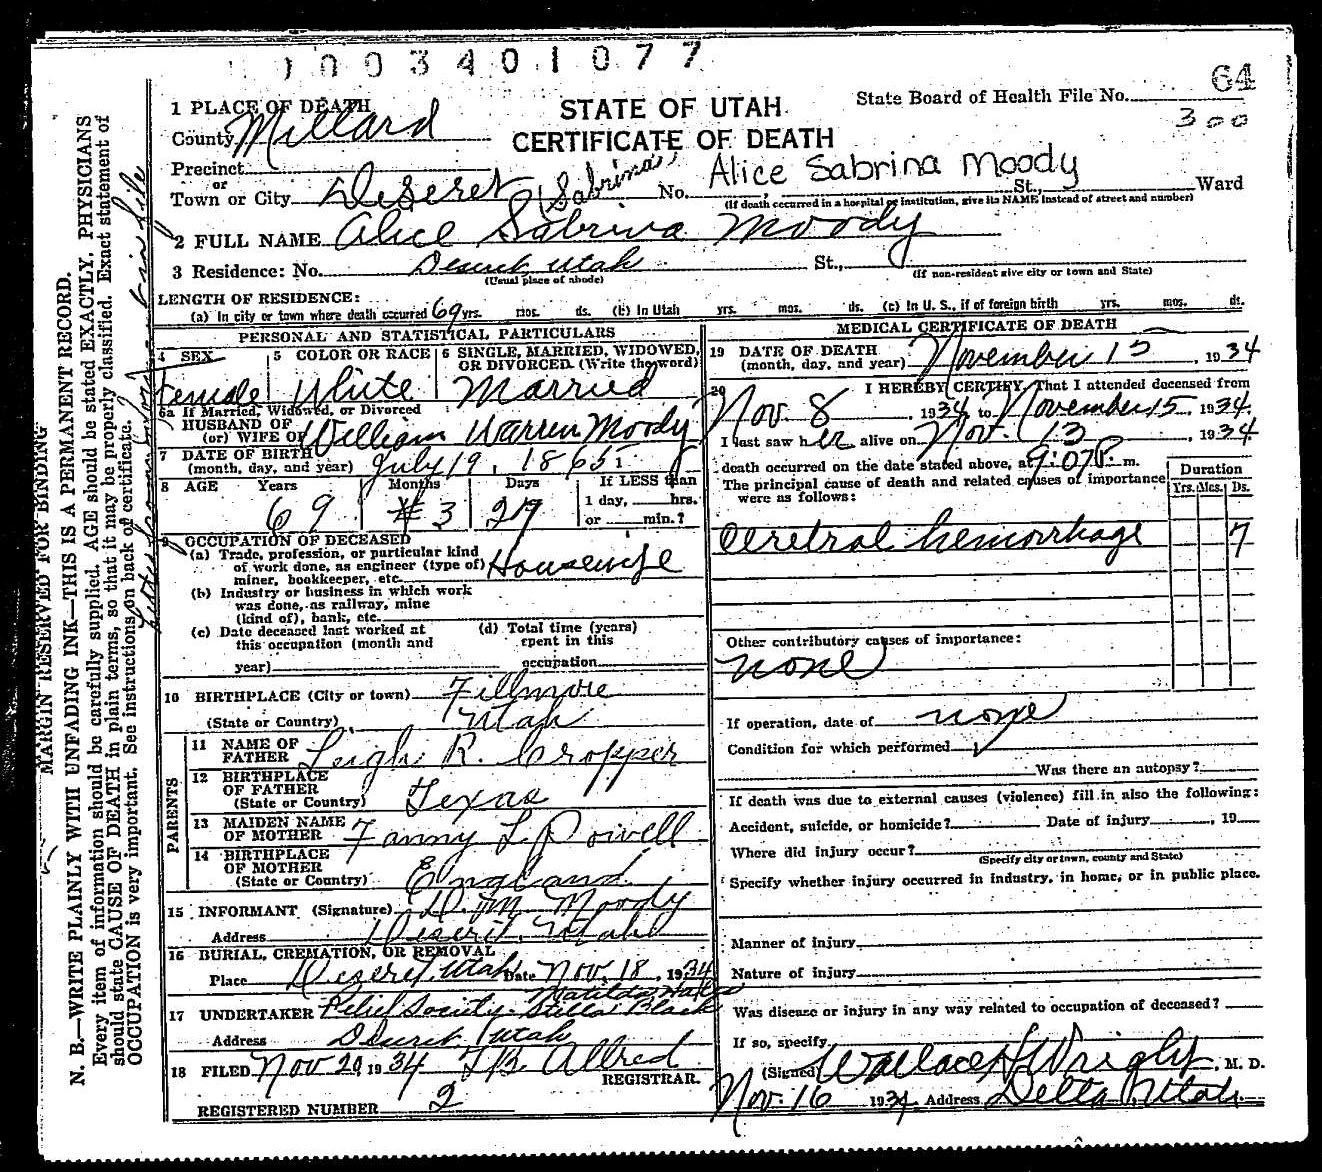 1003401077
64
State Board of Health File No.
300
STATE OF UTAH
CERTIFICATE OF DEATH
1 PLACE OF DEATH
County Millard
Precinct
or
Town or City Deseret (Sabrina) No. Alice Sabrina Moody St., Ward
(If death occurred in a hospital or institution, give its NAME instead of street and number)
2 FULL NAME Alice Sabrina Moody
3 Residence: No. Deseret Utah St.,
(Usual place of abode) (If non-resident give city or town and State)
LENGTH OF RESIDENCE:
(a) In city or town where death occurred 69 yrs. mos. ds. (b) In Utah yrs. mos. ds. (c) In U. S., if of foreign birth yrs. mos. ds.
PERSONAL AND STATISTICAL PARTICULARS
4 SEX Female
5 COLOR OR RACE White
6 SINGLE, MARRIED, WIDOWED,
OR DIVORCED. (Write the word)
Married
6a If Married, Widowed, or Divorced
HUSBAND OF
(or) WIFE OF William Warren Moody
7 DATE OF BIRTH
(month, day, and year) July 19, 1865
8 AGE Years Months Days If LESS than
69 3 27 1 day, hrs.
or min.?
9 OCCUPATION OF DECEASED
(a) Trade, profession, or particular kind
of work done, as engineer (type of)
miner, bookkeeper, etc. Housewife
(b) Industry or business in which work
was done, as railway, mine
(kind of), bank, etc.
(c) Date deceased last worked at
this occupation (month and
year)
(d) Total time (years)
spent in this
occupation
10 BIRTHPLACE (City or town) Fillmore
(State or Country) Utah
PARENTS
11 NAME OF
FATHER Leigh R. Cropper
12 BIRTHPLACE
OF FATHER
(State or Country) Texas
13 MAIDEN NAME
OF MOTHER Fanny L Powell
14 BIRTHPLACE
OF MOTHER
(State or Country) England
15 INFORMANT (Signature) D. M. Moody
Address Deseret, Utah
16 BURIAL, CREMATION, OR REMOVAL
Place Deseret, Utah Date Nov. 18, 1934
17 UNDERTAKER Relief Society - Stella Black
Address Deseret Utah
18 FILED Nov 20 1934 Allred
REGISTRAR.
REGISTERED NUMBER 2
MEDICAL CERTIFICATE OF DEATH
19 DATE OF DEATH
(month, day, and year) November 15, 1934
20 I HEREBY CERTIFY, That I attended deceased from
Nov 8, 1934 to November 15, 1934
I last saw her alive on Nov. 15, 1934
death occurred on the date stated above, at 9:07 P. m.
The principal cause of death and related causes of importance
were as follows:
Duration
Yrs. Mos. Ds.
Cerebral hemorrhage 7
Other contributory causes of importance:
none
If operation, date of none
Condition for which performed
Was there an autopsy?
If death was due to external causes (violence) fill in also the following:
Accident, suicide, or homicide? Date of injury , 19
Where did injury occur?
(Specify city or town, county and State)
Specify whether injury occurred in industry, in home, or in public place.
Manner of injury
Nature of injury
Was disease or injury in any way related to occupation of deceased?
If so, specify
(Signed) Wallace H Wright, M. D.
Nov. 16 1934 Address Delta, Utah.
MARGIN RESERVED FOR BINDING
N. B.—WRITE PLAINLY WITH UNFADING INK—THIS IS A PERMANENT RECORD.
Every item of information should be carefully supplied. AGE should be stated EXACTLY. PHYSICIANS
should state CAUSE OF DEATH in plain terms, so that it may be properly classified. Exact statement of
OCCUPATION is very important. See instructions on back of certificate.